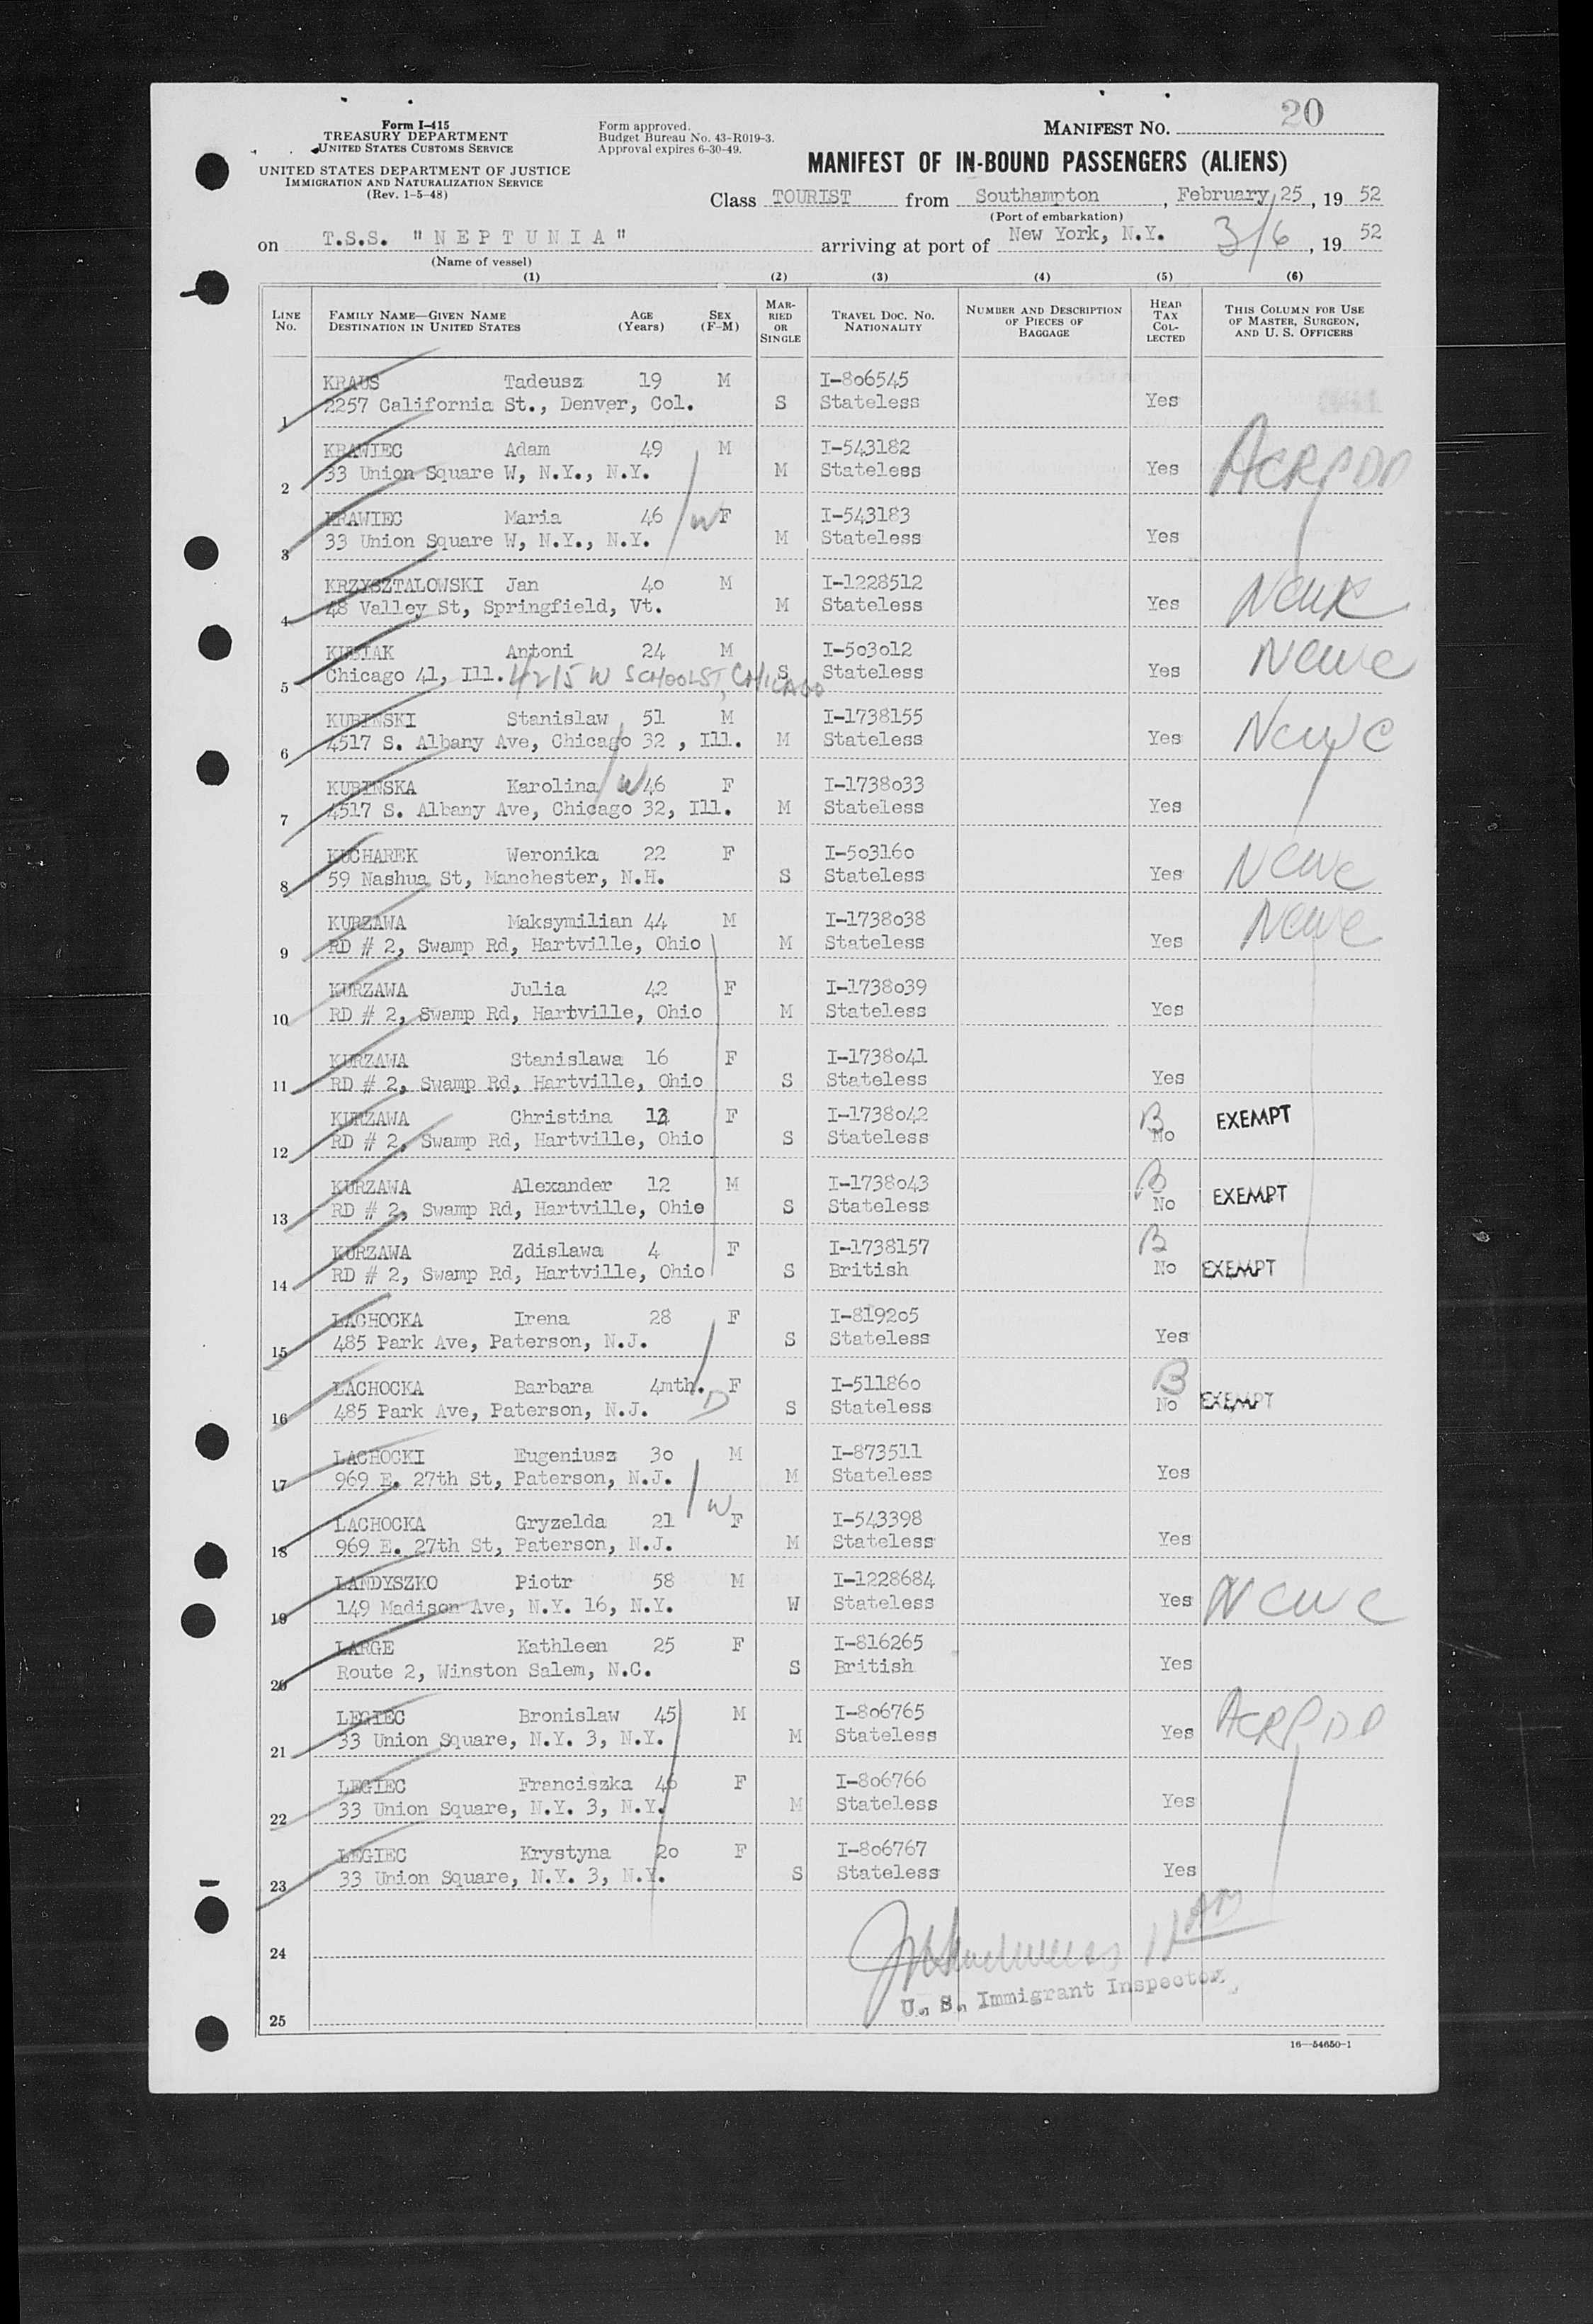 Form I-415
TREASURY DEPARTMENT
UNITED STATES CUSTOMS SERVICE
UNITED STATES DEPARTMENT OF JUSTICE
IMMIGRATION AND NATURALIZATION SERVICE
(Rev. 1-5-48)
Form approved.
Budget Bureau No. 43-R019-3.
Approval expires 6-30-49.
MANIFEST NO. 20
MANIFEST OF IN-BOUND PASSENGERS (ALIENS)
Class TOURIST from Southampton, February 25, 19 52
(Port of embarkation)
on T.S.S. "NEPTUNIA" arriving at port of New York, N.Y. 3/6, 19 52
(Name of vessel)
(1) (2) (3) (4) (5) (6)
LINE No. FAMILY NAME—GIVEN NAME DESTINATION IN UNITED STATES AGE (Years) SEX (F-M) MARRIED OR SINGLE TRAVEL DOC. NO. NATIONALITY NUMBER AND DESCRIPTION OF PIECES OF BAGGAGE HEAD TAX COLLECTED THIS COLUMN FOR USE OF MASTER, SURGEON, AND U. S. OFFICERS
KRAUS Tadeusz 19 M I-806545
1 2257 California St., Denver, Col. S Stateless Yes
KRAWIEC Adam 49 M I-543182
2 33 Union Square W, N.Y., N.Y. M Stateless Yes ACRPDP
KRAWIEC Maria 46 W F I-543183
3 33 Union Square W, N.Y., N.Y. M Stateless Yes
KRZYSZTALOWSKI Jan 40 M I-1228512
4 48 Valley St, Springfield, Vt. M Stateless Yes
KUBIAK Antoni 24 M I-503012
5 Chicago 41, Ill. 4215 W SCHOOL ST, CHICAGO S Stateless Yes NCWC
KUBINSKI Stanislaw 51 M I-1738155
6 4517 S. Albany Ave, Chicago 32 , Ill. M Stateless Yes NCWC
KUBINSKA Karolina W 46 F I-1738033
7 4517 S. Albany Ave, Chicago 32, Ill. M Stateless Yes
KUCHAREK Weronika 22 F I-503160
8 59 Nashua St, Manchester, N.H. S Stateless Yes NCWC
KURZAWA Maksymilian 44 M I-1738038
9 RD # 2, Swamp Rd, Hartville, Ohio M Stateless Yes NCWC
KURZAWA Julia 42 F I-1738039
10 RD # 2, Swamp Rd, Hartville, Ohio M Stateless Yes
KURZAWA Stanislawa 16 F I-1738041
11 RD # 2, Swamp Rd, Hartville, Ohio S Stateless Yes
KURZAWA Christina F I-1738042 B EXEMPT
12 RD # 2, Swamp Rd, Hartville, Ohio S Stateless No
KURZAWA Alexander 12 M I-1738043 B EXEMPT
13 RD # 2, Swamp Rd, Hartville, Ohio S Stateless No
KURZAWA Zdislawa 4 F I-1738157 B
14 RD # 2, Swamp Rd, Hartville, Ohio S British No EXEMPT
LACHOCKA Irena 28 F I-819205
15 485 Park Ave, Paterson, N.J. S Stateless Yes
LACHOCKA Barbara 4mth. F I-511860 B
16 485 Park Ave, Paterson, N.J. D S Stateless No EXEMPT
LACHOCKI Eugeniusz 30 M I-873511
17 969 E. 27th St, Paterson, N.J. M Stateless Yes
LACHOCKA Gryzelda 21 W F I-543398
18 969 E. 27th St, Paterson, N.J. M Stateless Yes
LANDYSZKO Piotr 58 M I-1228684
19 149 Madison Ave, N.Y. 16, N.Y. W Stateless Yes NCWC
LARGE Kathleen 25 F I-816265
20 Route 2, Winston Salem, N.C. S British Yes
LEGIEC Bronislaw 45 M I-806765
21 33 Union Square, N.Y. 3, N.Y. M Stateless Yes ACRPDP
LEGIEC Franciszka 46 F I-806766
22 33 Union Square, N.Y. 3, N.Y. M Stateless Yes
LEGIEC Krystyna 20 F I-806767
23 33 Union Square, N.Y. 3, N.Y. S Stateless Yes
24
11 AM
U. S. Immigrant Inspector
25
16—54650-1